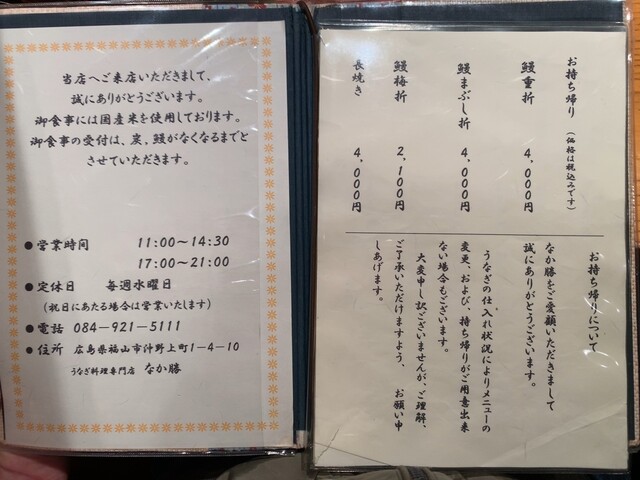 当店へご来店いただきまして、
誠にありがとうございます。
御食事には国産米を使用しております。
御食事の受付は、炭，鰻がなくなるまでと
させていただきます。
●営業時間　11:00〜14:30
17:00〜21:00
●定休日　毎週水曜日
(祝日にあたる場合は営業いたします)
●電話　084-921-5111
●住所　広島県福山市沖野上町1-4-10
うなぎ料理専門店　なか勝
お持ち帰り（価格は税込みです）
鰻重折　4,000円
鰻まぶし折　4,000円
鰻梅折　2,100円
長焼き　4,000円
お持ち帰りについて
なか勝をご愛顧いただきまして
誠にありがとうございます。
うなぎの仕入れ状況によりメニューの
変更、および、持ち帰りがご用意出来
ない場合もございます。
大変申し訳ございませんが、ご理解、
ご了承いただけますよう、お願い申
しあげます。